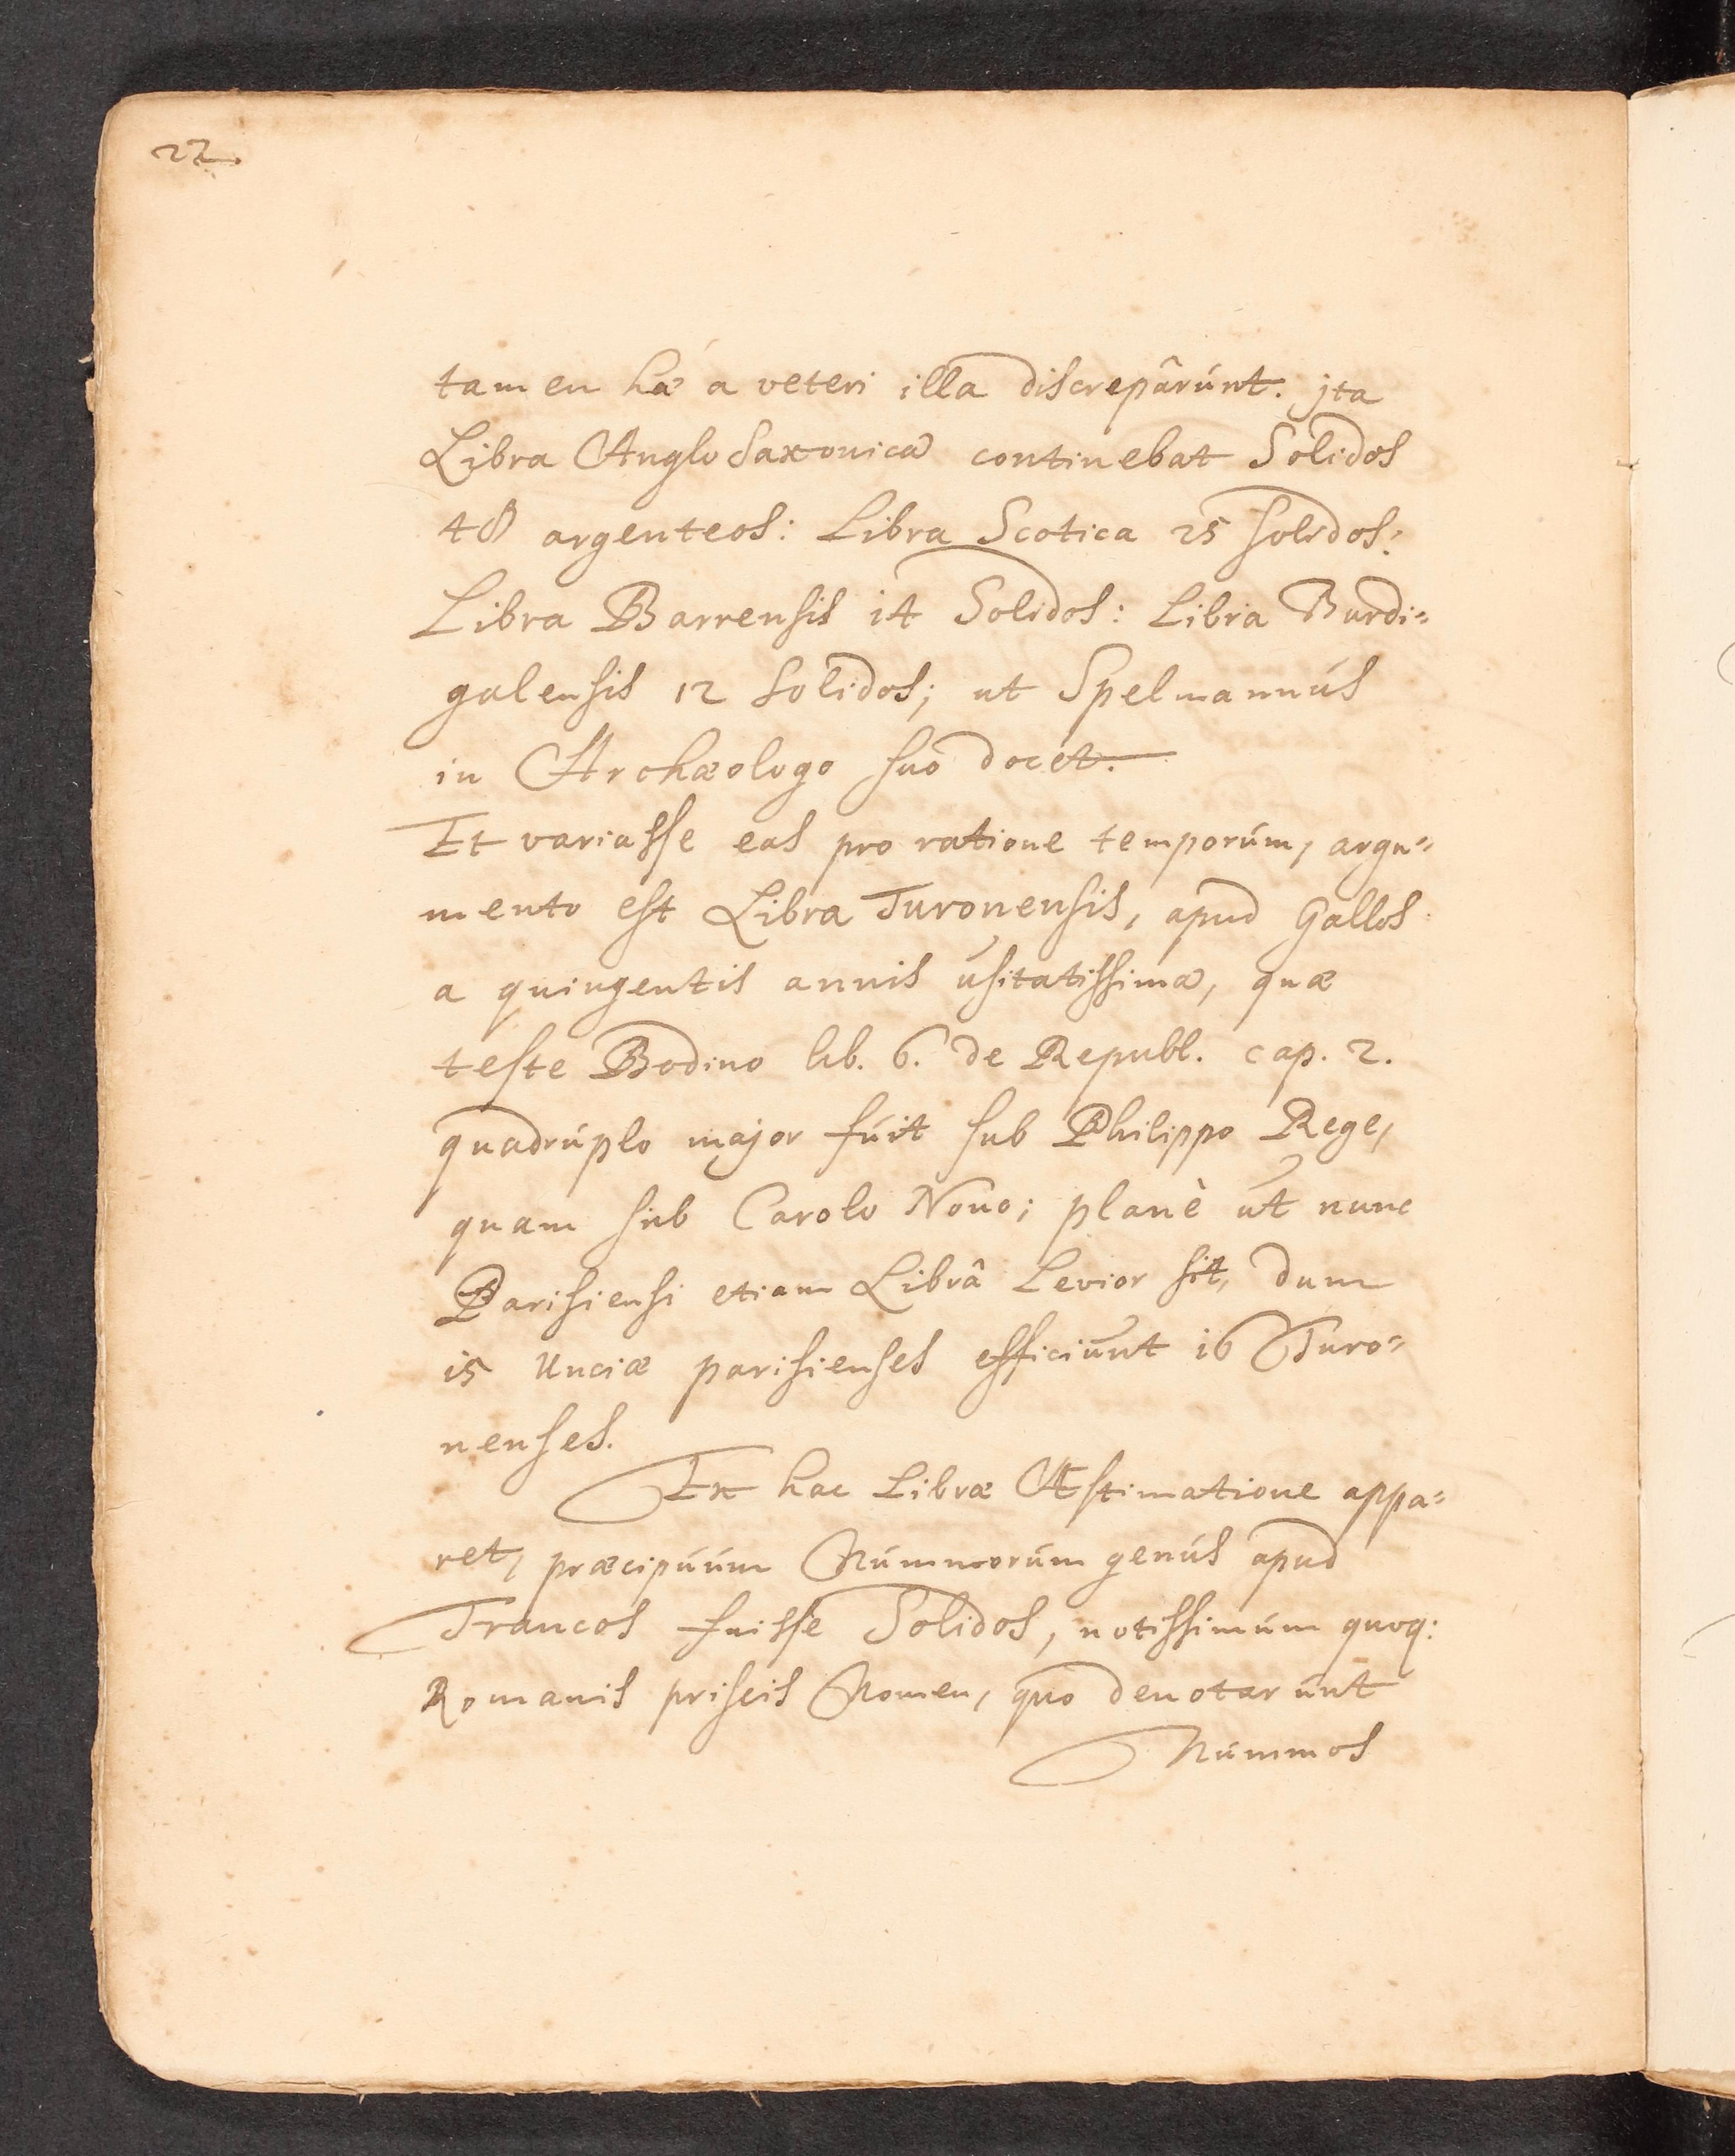 22.
tamen hæ a veteri illa discrepârúnt. jta
Libra AngloSaxonica continebat Solidos
48 argenteos: Libra Scotica 25 solidos:
Libra Barrensis i4 Solidos: Libra Burdi=
galensis 12 solidos; ut Spelmannús
in Archæologo suo docet.
Et variasse eas pro ratione temporúm, argu=
mento est Libra Turonensis, apud Gallos
a quingentis annis usitatissima, quæ
teste Bodino lib. 6. de Republ. cap. 2.
quadrúplo major fúit sub Philippo Rege,
quam sub Carolo Nono; planè ut nunc
Parisiensi etiam Librâ Levior sit, dum
i5 Unciæ parisienses efficiunt i6 Turo=
nenses.
Ex hac Libræ Æstimatione appa=
ret, præcipúúm Númmorúm genús apud
Francos fuisse Solidos, notissimúm quoq:
Romanis priscis Nomen, quo denotarúnt
Númmos